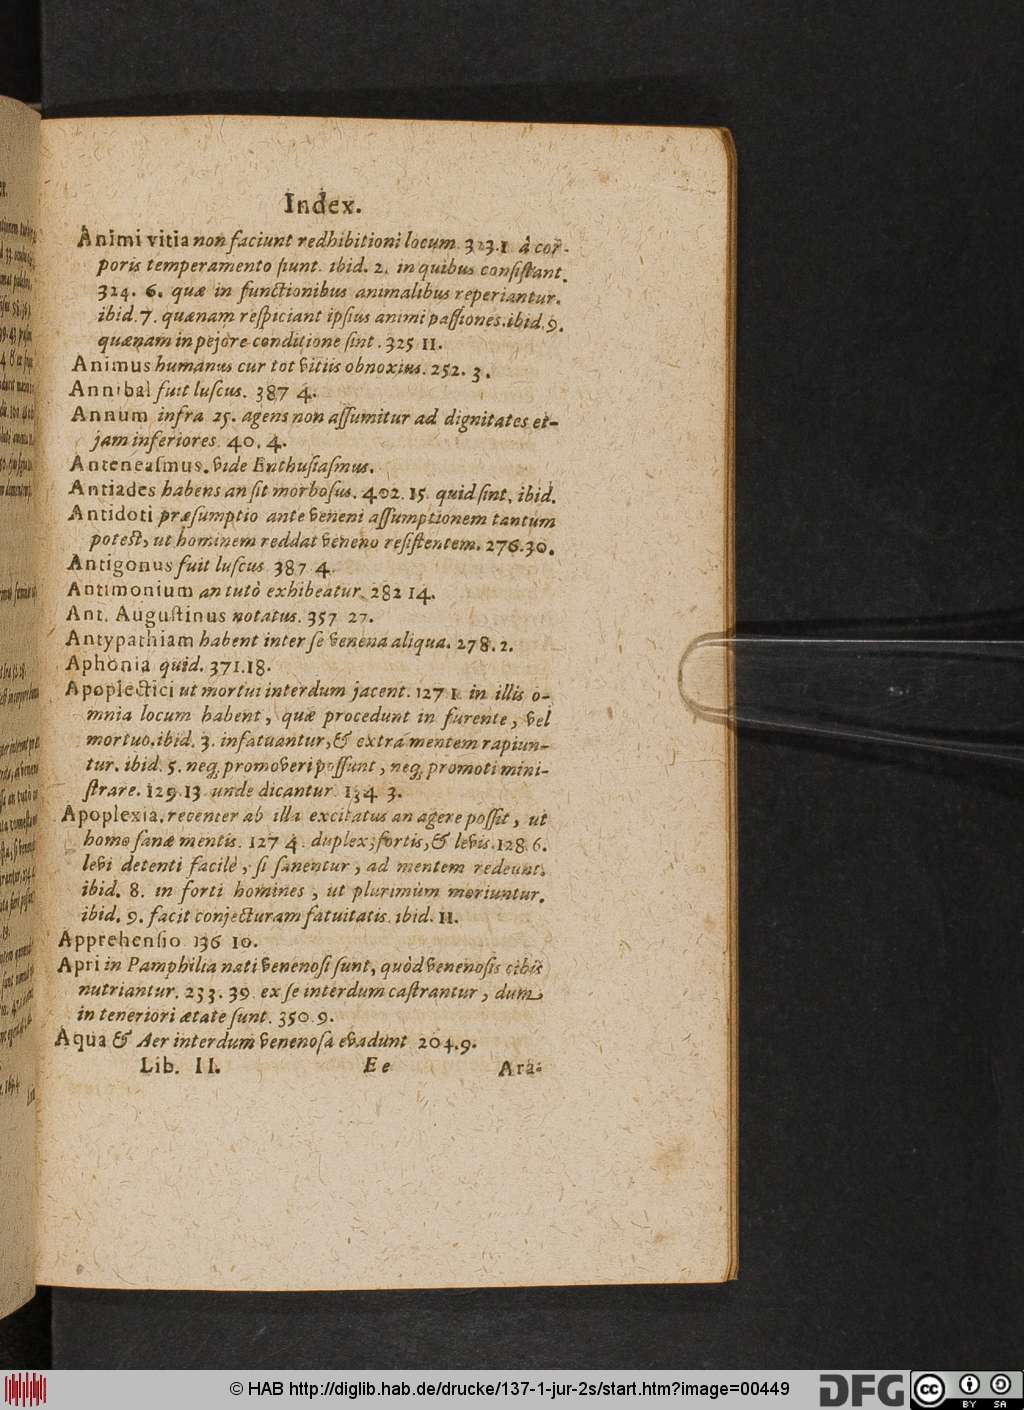 Index.
Animi vitia non faciunt redhibitioni locum. 323.1 à cor-
poris temperamento fiunt. ibid. 2. in quibus consistant.
324. 6. quæ in functionibus animalibus reperiantur.
ibid. 7. quænam respiciant ipsius animi passiones. ibid. 9.
quænam in pejore conditione sint. 325 11.
Animus humanus cur tot vitiis obnoxius. 252. 3.
Annibal fuit luscus. 387 4.
Annum infra 25. agens non assumitur ad dignitates et-
jam inferiores. 40. 4.
Anteneasmus. vide Enthusiasmus.
Antiades habens an sit morbosus. 402. 15. quid sint. ibid.
Antidoti præsumptio ante veneni assumptionem tantum
potest, ut hominem reddat veneno resistentem. 276.30.
Antigonus fuit luscus 387 4.
Antimonium an tutò exhibeatur. 282 14.
Ant. Augustinus notatus. 357 27.
Antypathiam habent inter se venena aliqua. 278. 2.
Aphonia quid. 371.18.
Apoplectici ut mortui interdum jacent. 127 1. in illis o-
mnia locum habent, quæ procedunt in furente, vel
mortuo. ibid. 3. infatuantur, & extra mentem rapiun-
tur. ibid. 5. neq; promoveri possunt, neq; promoti mini-
strare. 129. 13 unde dicantur 134 3.
Apoplexia. recenter ab illa excitatus an agere possit, ut
homo sanæ mentis. 127 4. duplex; fortis, & levis. 128. 6.
levi detenti facilè, si sanentur, ad mentem redeunt.
ibid. 8. in forti homines, ut plurimùm moriuntur.
ibid. 9. facit conjecturam fatuitatis. ibid. 11.
Apprehensio 136 10.
Apri in Pamphilia nati venenosi sunt, quòd venenosis cibis
nutriantur. 233. 39. ex se interdum castrantur, dum
in teneriori ætate sunt. 350 9.
Aqua & Aer interdum venenosa evadunt 204.9.
Lib. II. Ee Ara-
© HAB http://diglib.hab.de/drucke/137-1-jur-2s/start.htm?image=00449
DFG
cc
BY SA